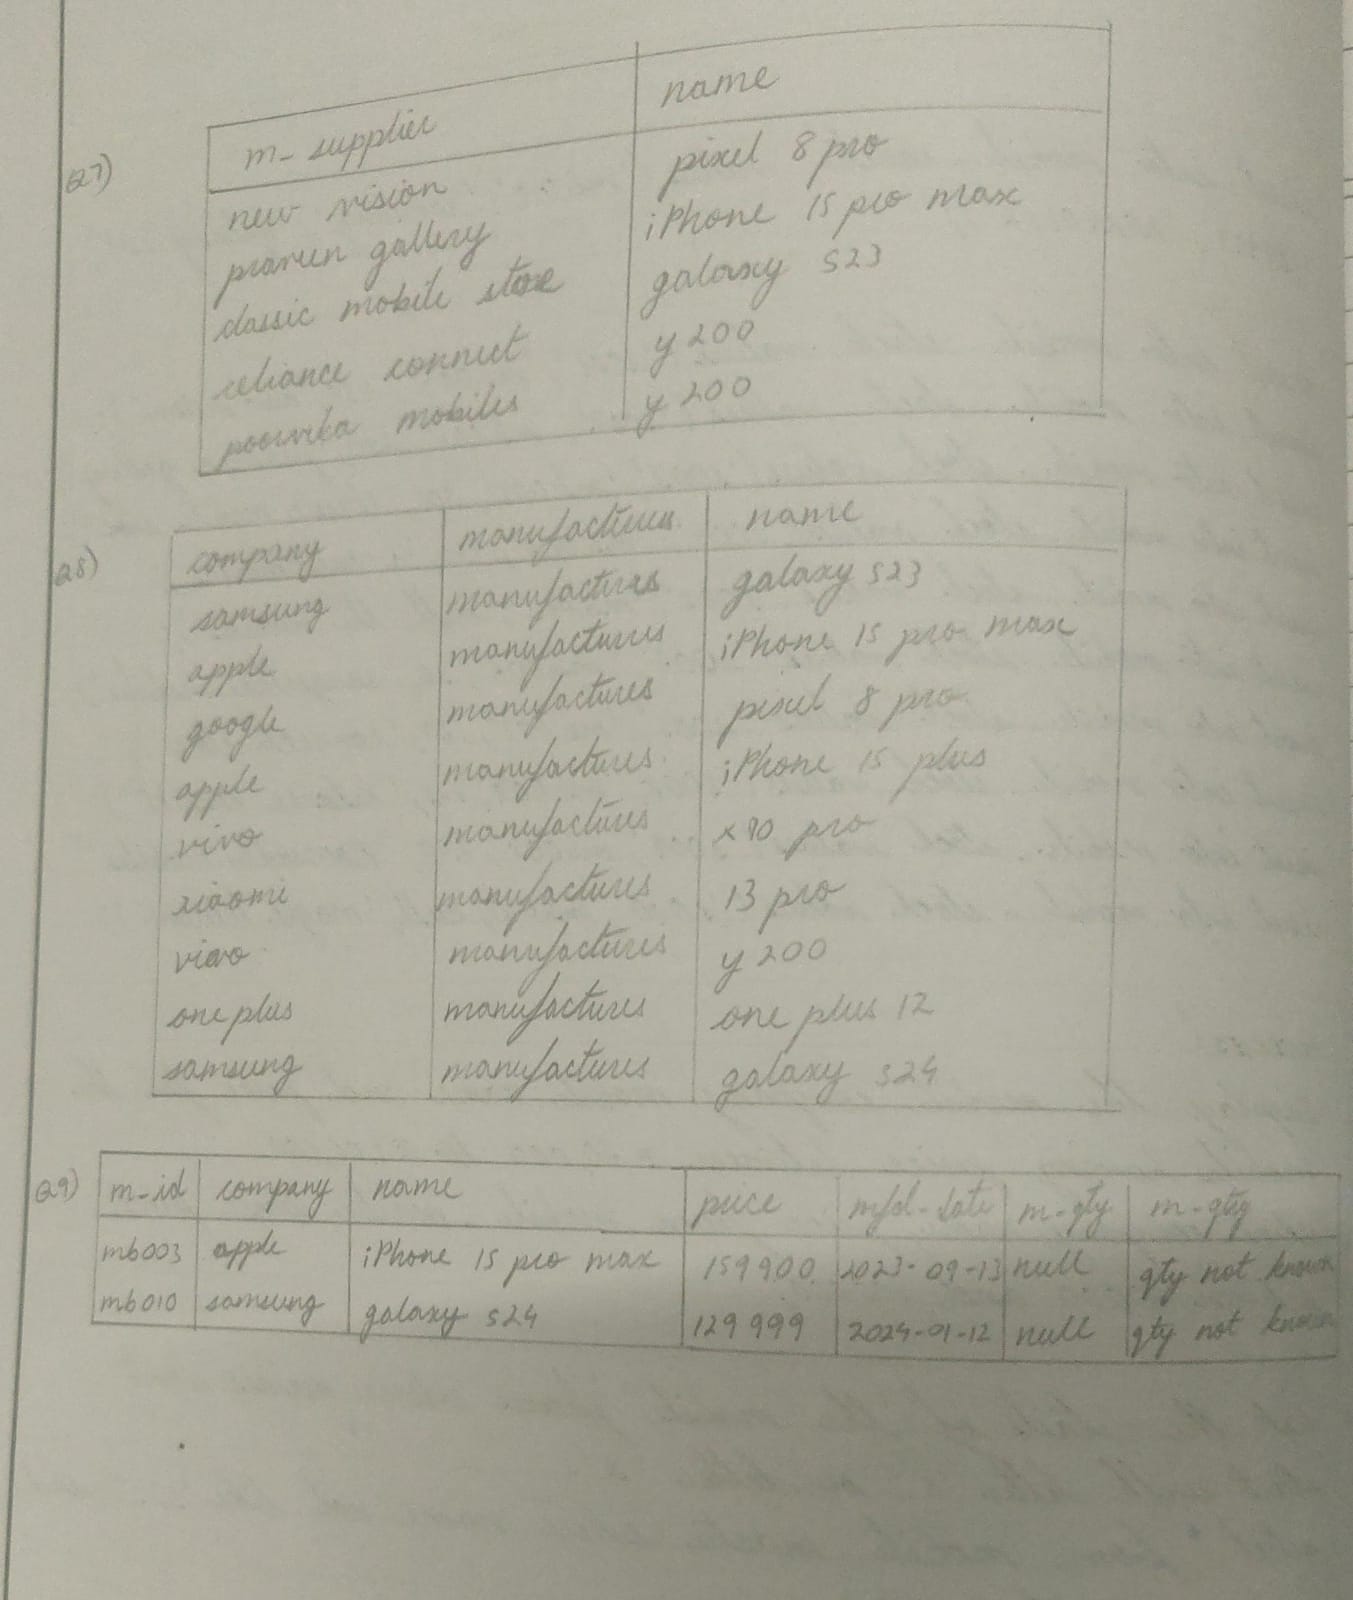 Q7)
m-supplier name
new vision pixel 8 pro
praven gallery iPhone 15 pro max
classic mobile store galaxy s23
reliance connect y200
poorvika mobiles y200
Q8)
company manufactures name
samsung manufactures galaxy s23
apple manufactures iPhone 15 pro max
google manufactures pixel 8 pro
apple manufactures iPhone 15 plus
vivo manufactures x90 pro
xiaomi manufactures 13 pro
vivo manufactures y200
one plus manufactures one plus 12
samsung manufactures galaxy s24
Q9)
m-id company name price mfd-date m-qty m-qty
mb003 apple iPhone 15 pro max 159900 2023-09-13 null qty not known
mb010 samsung galaxy s24 129999 2024-01-12 null qty not known